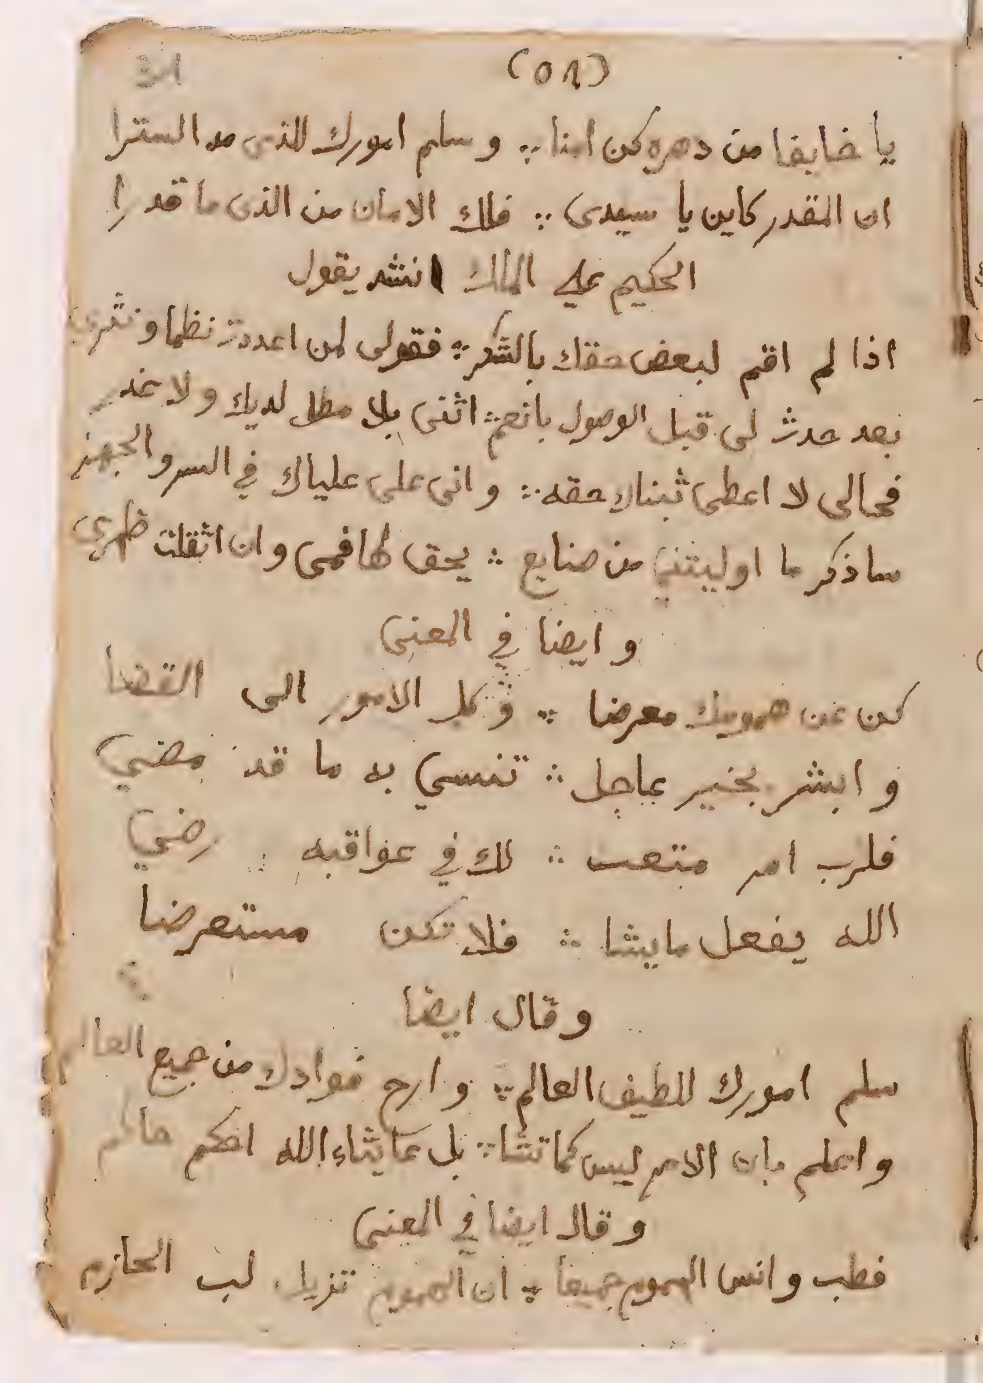 (٥٨)
يا خايفا من دهره كن امنا ∴ وسلم امورك للذى مد السترا
ان المقدر كاين يا سيدى ∴ فلك الامان من الذى ما قدرا
الحكيم على الملك انشد يقول
اذا لم اقم لبعض حقك بالشكر ∴ فقولى لمن اعددت نظما ونثرى
بعد حدث لى قبل الوصول بانعم ∴ اتنى بلا مطل لديك ولا عذر
فمالى لا اعطى ثناك حقه ∴ وانى على علياك في السر والجهر
ساذكر ما اوليتني من صنايع ∴ يحق لها فمى وان اثقلت ظهري
وايضا في المعنى
كن عن همومك معرضا ∴ وكل الامور الى القضا
وابشر بخير عاجل ∴ تنسي به ما قد مضي
فلرب امر متعب ∴ لك في عواقبه رضي
الله يفعل ما يشا ∴ فلا تكن مستعرضا
وقال ايضا
سلم امورك للطيف العالم ∴ وارح فوادك من جميع العالم
واعلم بان الامر ليس كما تشا ∴ بل ما يشاء الله احكم حاكم
وقال ايضا في المعنى
فطب وانس الهموم جميعا ∴ ان الهموم تزيل لب الحازم